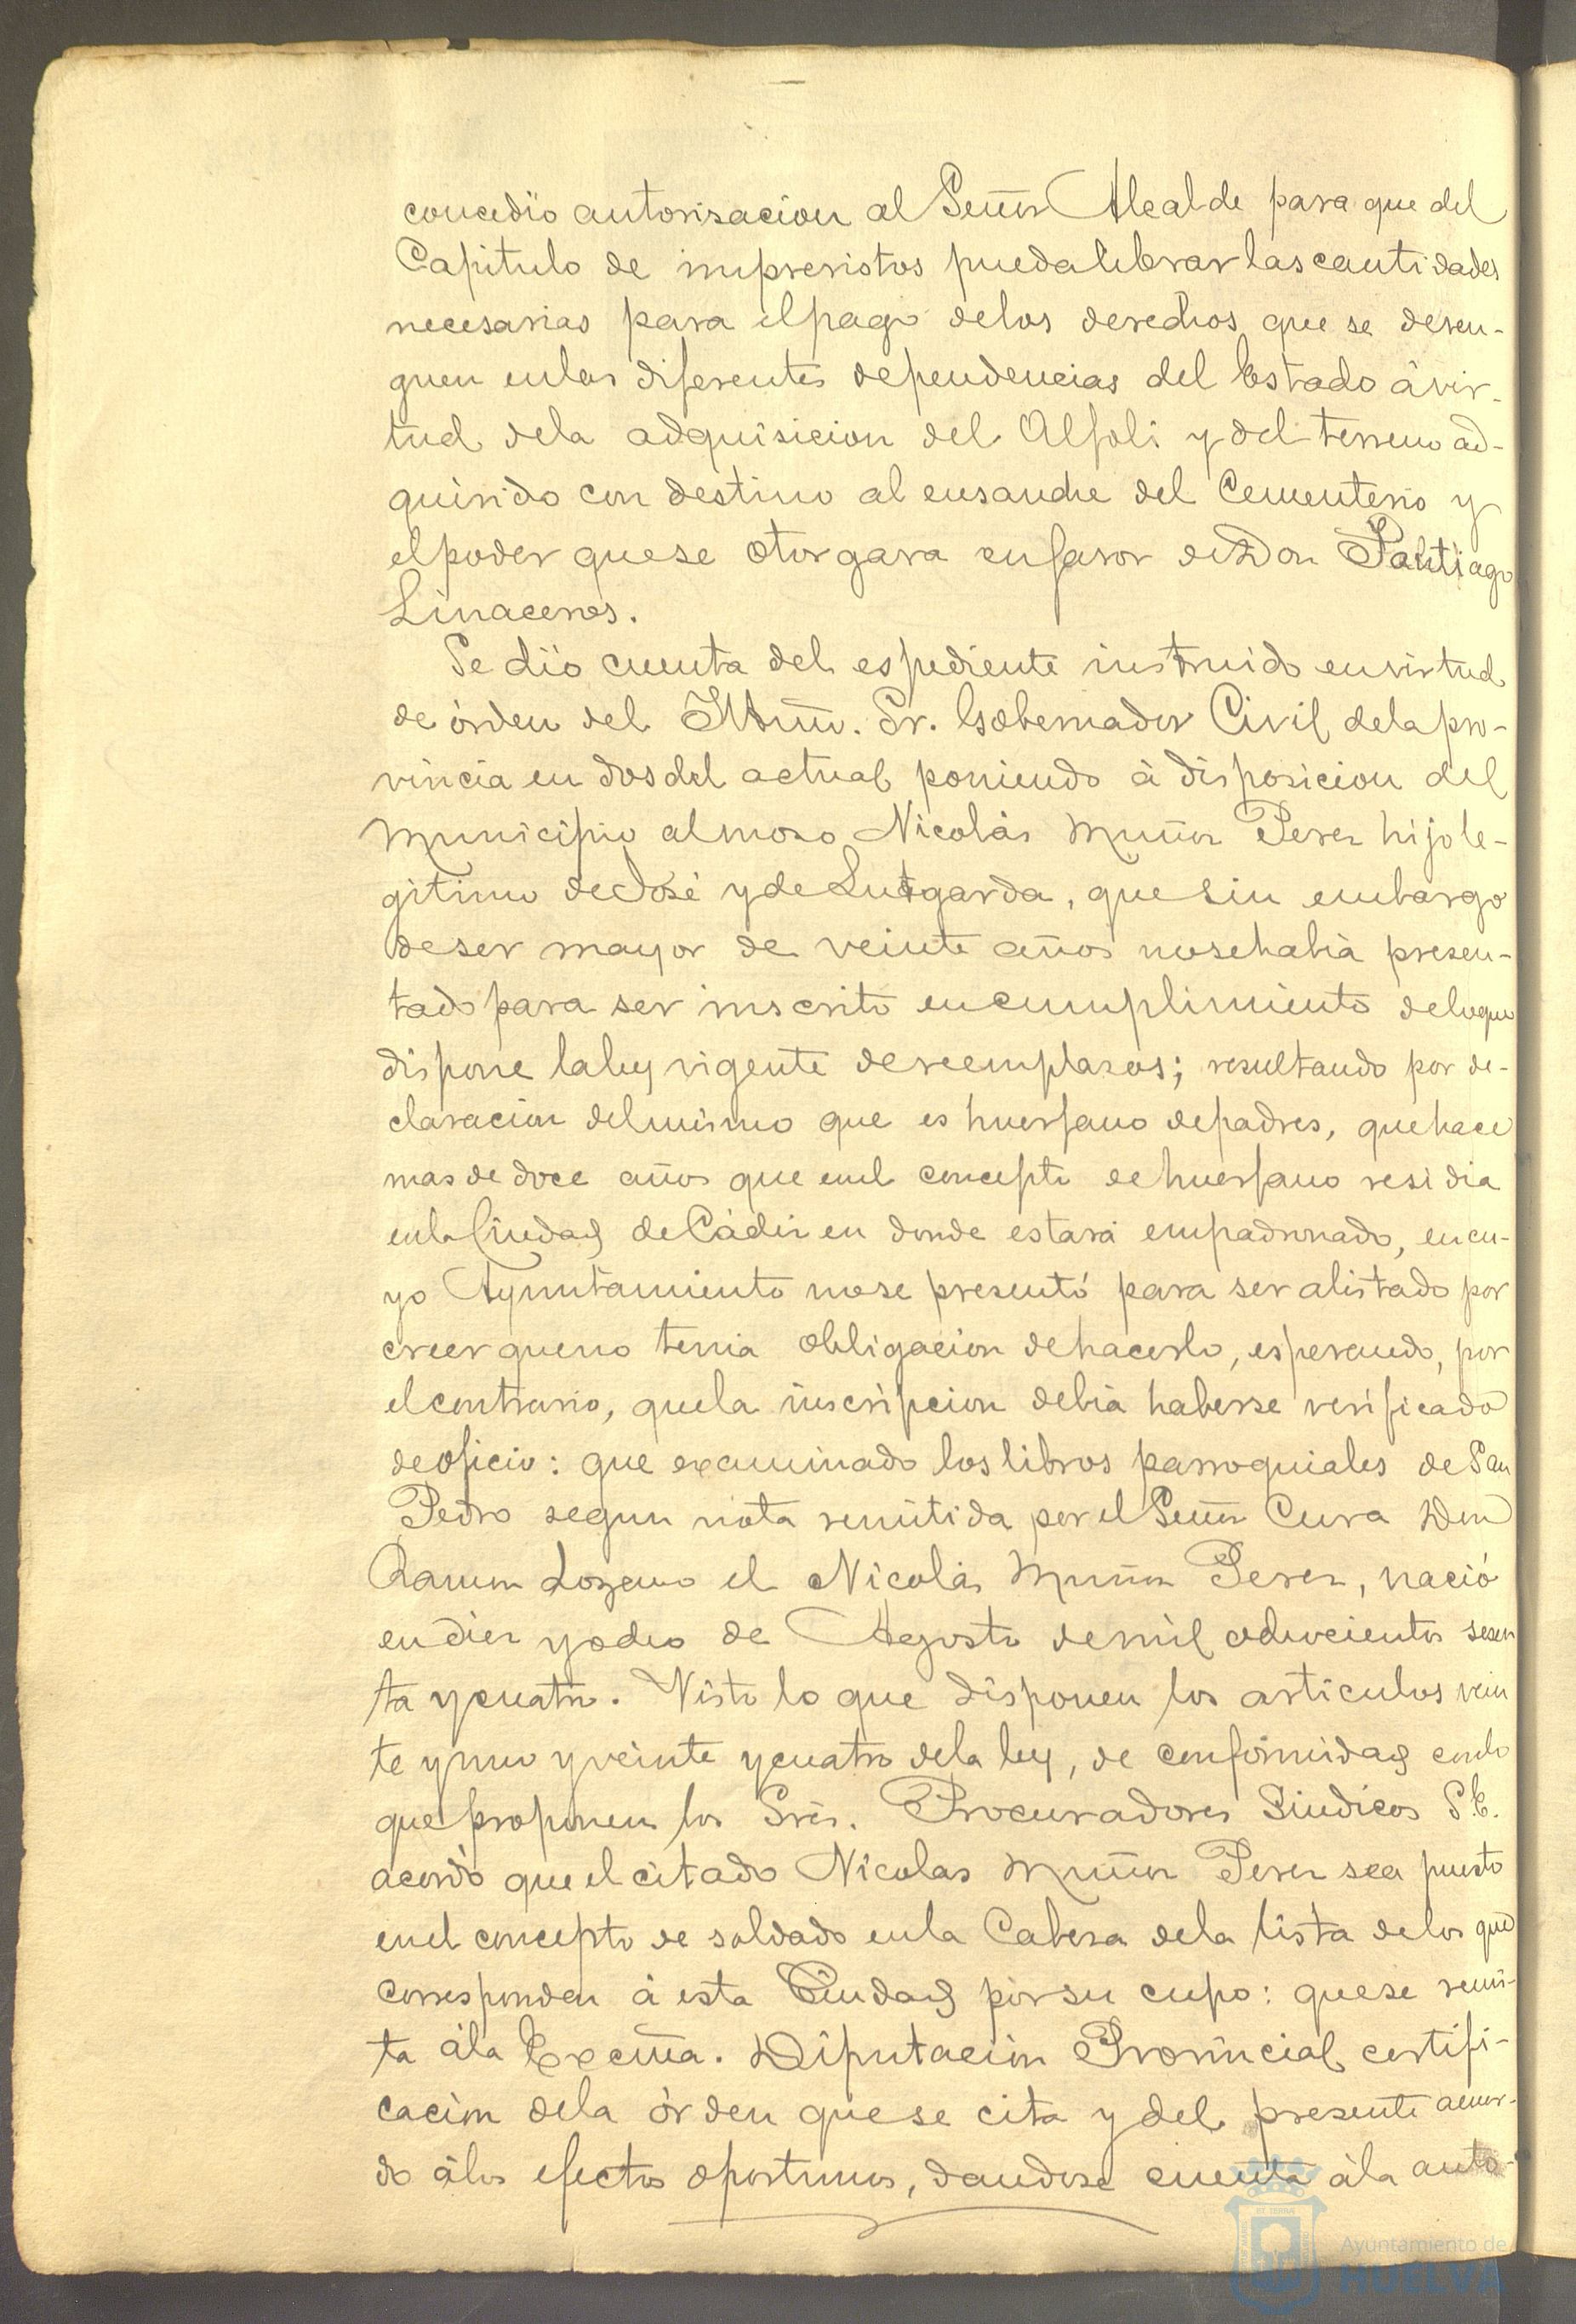 concedió autorisacion al Señor Alcalde para que del
Capitulo de imprevistos pueda librar las cantidades
necesarias para el pago de los derechos que se deven-
guen en las diferentes dependencias del Estado á vir-
tud de la adquisicion del Alfoli y del terreno ad-
quirido con destino al ensanche del Cementerio y
el poder que se otorgara en favor de Don Santiago
Linaceros.
Se dió cuenta del espediente instruido en virtud
de órden del Iltmo. Sr. Gobernador Civil de la pro-
vincia en dos del actual poniendo á disposicion del
Municipio al moso Nicolás Muñoz Perez hijo le-
gitimo de José y de Lutgarda, que sin embargo
de ser mayor de veinte años no se habia presen-
tado para ser inscrito en cumplimiento de lo que
dispone la ley vigente de reemplasos; resultando por de-
claracion del mismo que es huerfano de padres, que hace
mas de doce años que en el concepto de huerfano residia
en la Ciudad de Cádiz en donde estará empadronado, en cu-
yo Ayuntamiento no se presentó para ser alistado por
creer que no tenia obligacion de hacerlo, esperando, por
el contrario, que la inscripcion debia haberse verificado
de oficio: que examinado los libros parroquiales de San
Pedro segun nota remitida por el Señor Cura Don
Ramon Lozano el Nicolás Muñoz Perez, nació
en diez y ocho de Agosto de mil ochocientos sesen
ta y cuatro. Visto lo que disponen los articulos vein
te y uno y veinte y cuatro de la ley, de conformidad con lo
que proponen los Sres. Procuradores Sindicos S.E.
acordó que el citado Nicolas Muñoz Perez sea puesto
en el concepto de soldado en la Cabesa de la lista de los que
corresponden á esta Ciudad por su cupo: que se remi-
ta á la Excma. Diputacion Provincial certifi-
cacion de la órden que se cita y del presente acuer-
do á los efectos oportunos, dandose cuenta á la auto-
Ayuntamiento de
HUELVA